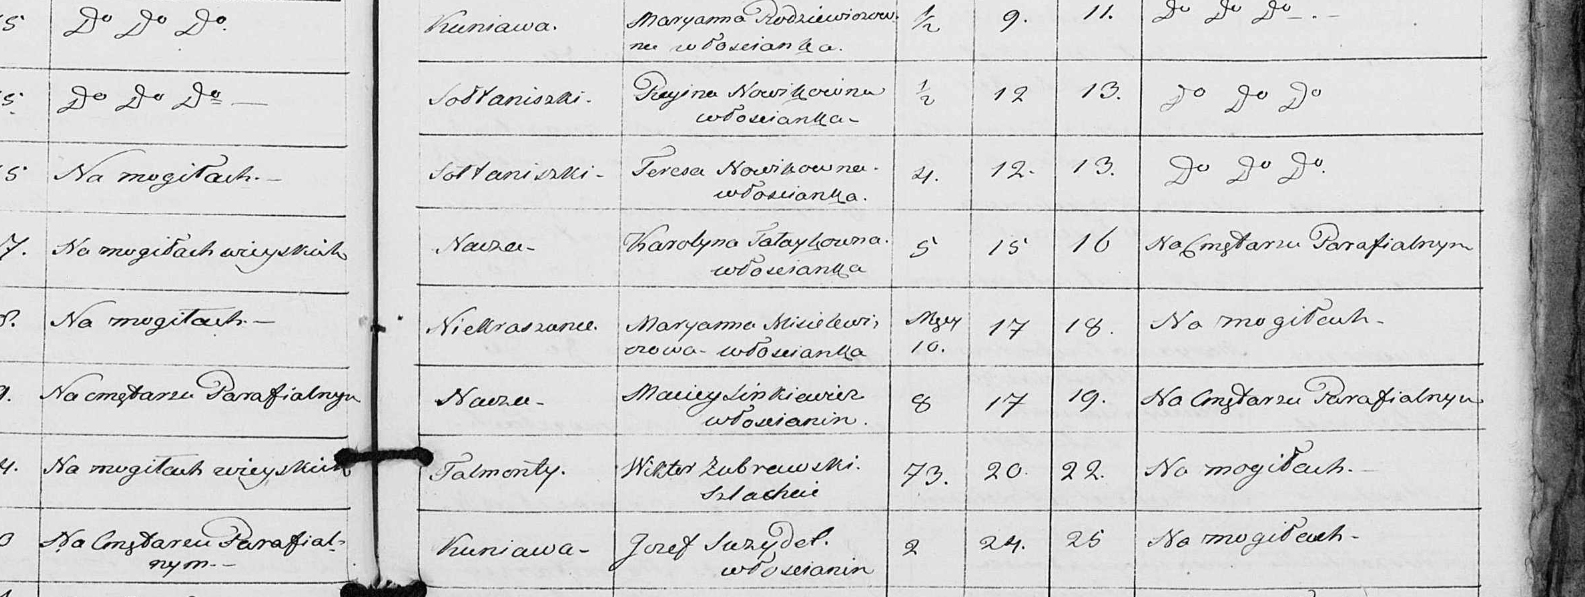 5 Do Do Do.
5. Do Do Do —
5 Na mogiłach. —
7. Na mogiłach wieyskich
8. Na mogiłach. —
9. Na cmętarzu Parafialnym
4. Na mogiłach wieyskich
0 Na Cmętarzu Parafial-
nym. —
Kuniawa. Maryanna Rodziewiczow- ½ 9. 11. Do Do Do — . —
na włościanka.
Sołtaniszki. Regina Nowikowna ½ 12 13. Do Do Do
włościanka —
Sołtaniszki - Teresa Nowikowna. 4. 12. 13. Do Do Do.
włościanka.
Nacza - Karolyna Tataykowna. 5 15 16 Na Cmętarzu Parafialnym
włościanka
Niekraszance. Maryanna Misielewi- Mcy 17 18. Na mogiłach -
czowa - włościanka 10.
Nacza - Maciey Sinkiewicz 8 17 19. Na Cmętarzu Parafialnym
włościanin.
Talmonty. Wiktor Zubrzewski. 73. 20. 22. Na mogiłach. —
Szlachcic
Kuniawa - Jozef Suzydel. 2 24. 25 Na mogiłach -
włościanin